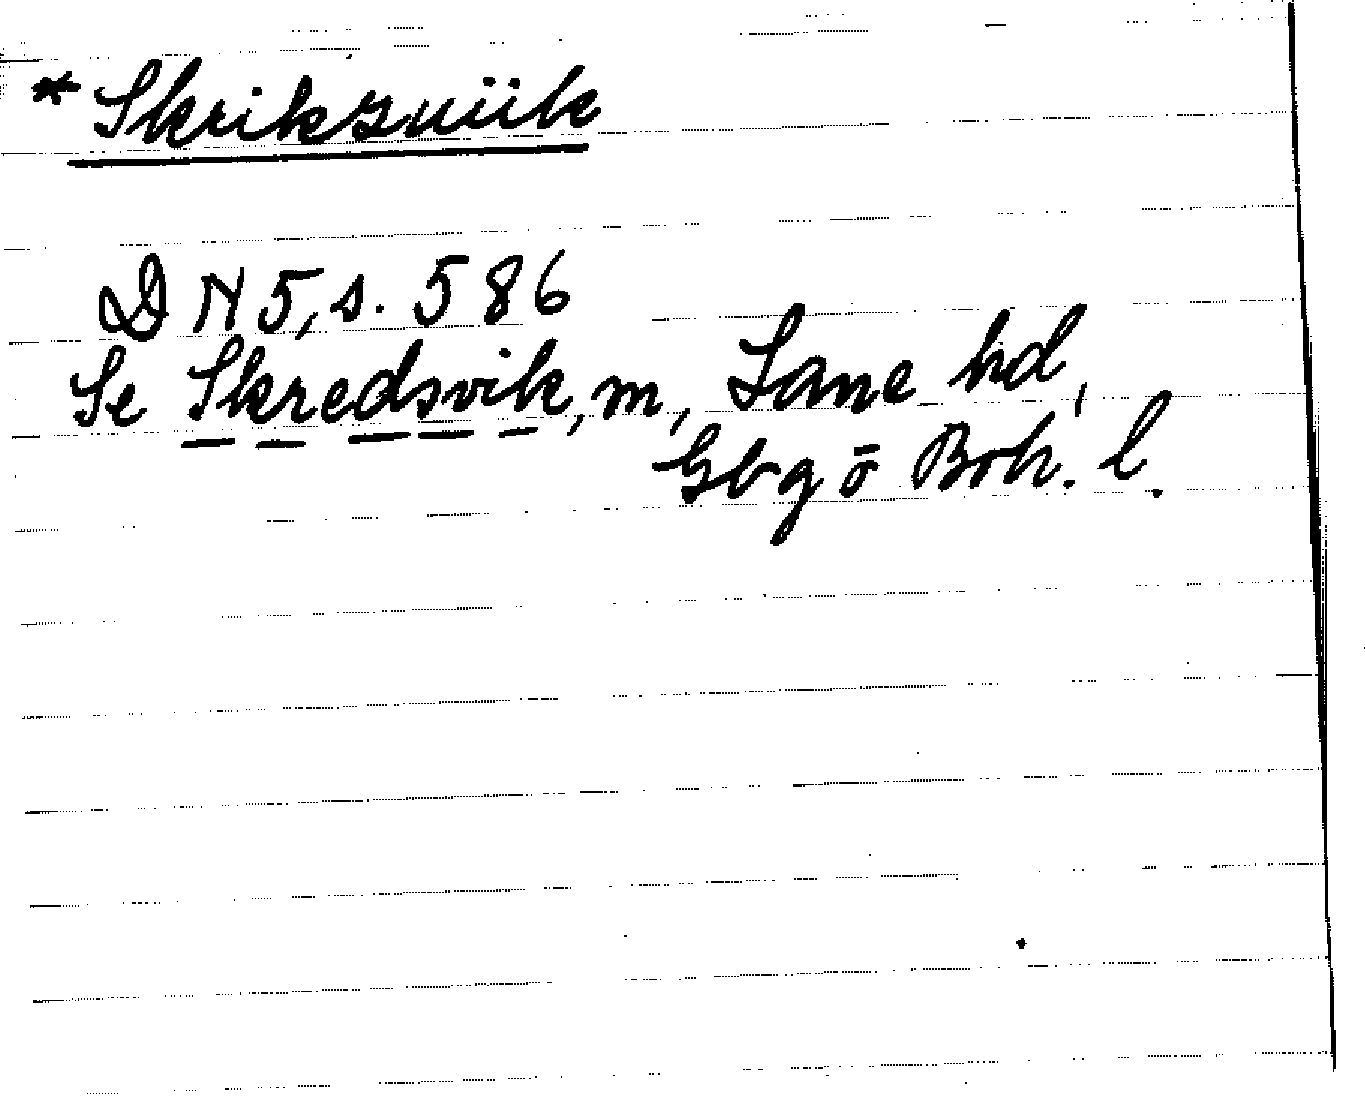 * Skrikzuiik
DN 5, s. 586
Se Skredsvik, m, Lane hd,
Gbg o Boh. l.